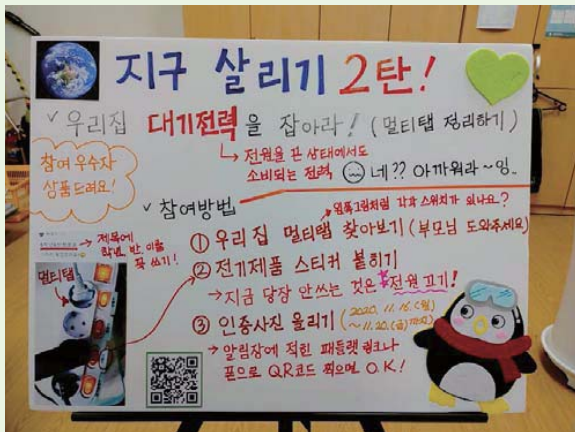 지구 살리기 2탄!
✓ 우리집 대기전력을 잡아라! (멀티탭 정리하기)
↳ 전원을 끈 상태에서도
소비되는 전력 네?? 아까워라~잉..
참여 우수자
상품드려요!
✓ 참여방법
왼쪽그림처럼 각각 스위치가 있나요?
① 우리 집 멀티탭 찾아보기 (부모님 도와주세요)
제목에
학년, 반, 이름
꼭 쓰기!
멀티탭
② 전기제품 스티커 붙히기
→ 지금 당장 안쓰는 것은 전원 끄기!
③ 인증사진 올리기 (2020. 11. 16. (월)
~11. 20. (금)까지)
→ 알림장에 적힌 패들렛 링크나
폰으로 QR코드 찍으면 O.K!